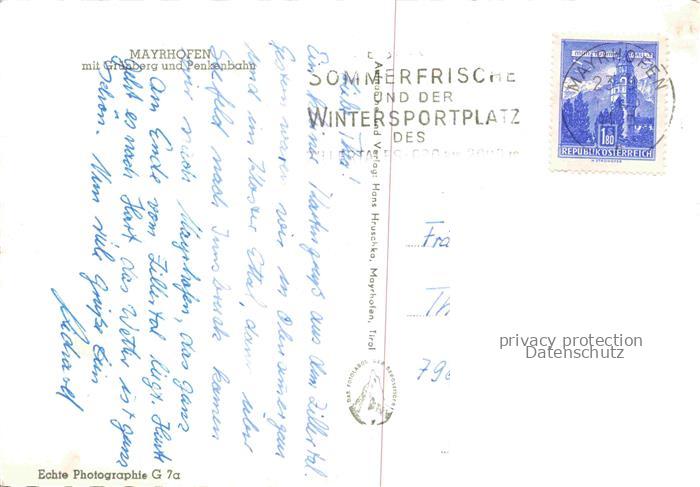 MAYRHOFEN
mit Grünberg und Penkenbahn
SOMMERFRISCHE
UND DER
WINTERSPORTPLATZ
DES
MAYRHOFEN
23
1.80
REPUBLIK ÖSTERREICH
Liebe
Ein kleiner Kartengruß aus dem Zillertal.
Gestern waren wir in Oberammergau
und im Kloster Ettal, dann über
Seefeld nach Innsbruck kamen
wir nach Mayrhofen, das ganz
am Ende vom Zillertal liegt. Heute
geht es nach Hart das Wetter ist ganz
schön. Nun viele Grüße Dein
Aufnahme und Verlag: Hans Hruschka, Mayrhofen, Tirol
Echte Photographie G 7a
Frä
Th
79
privacy protection
Datenschutz